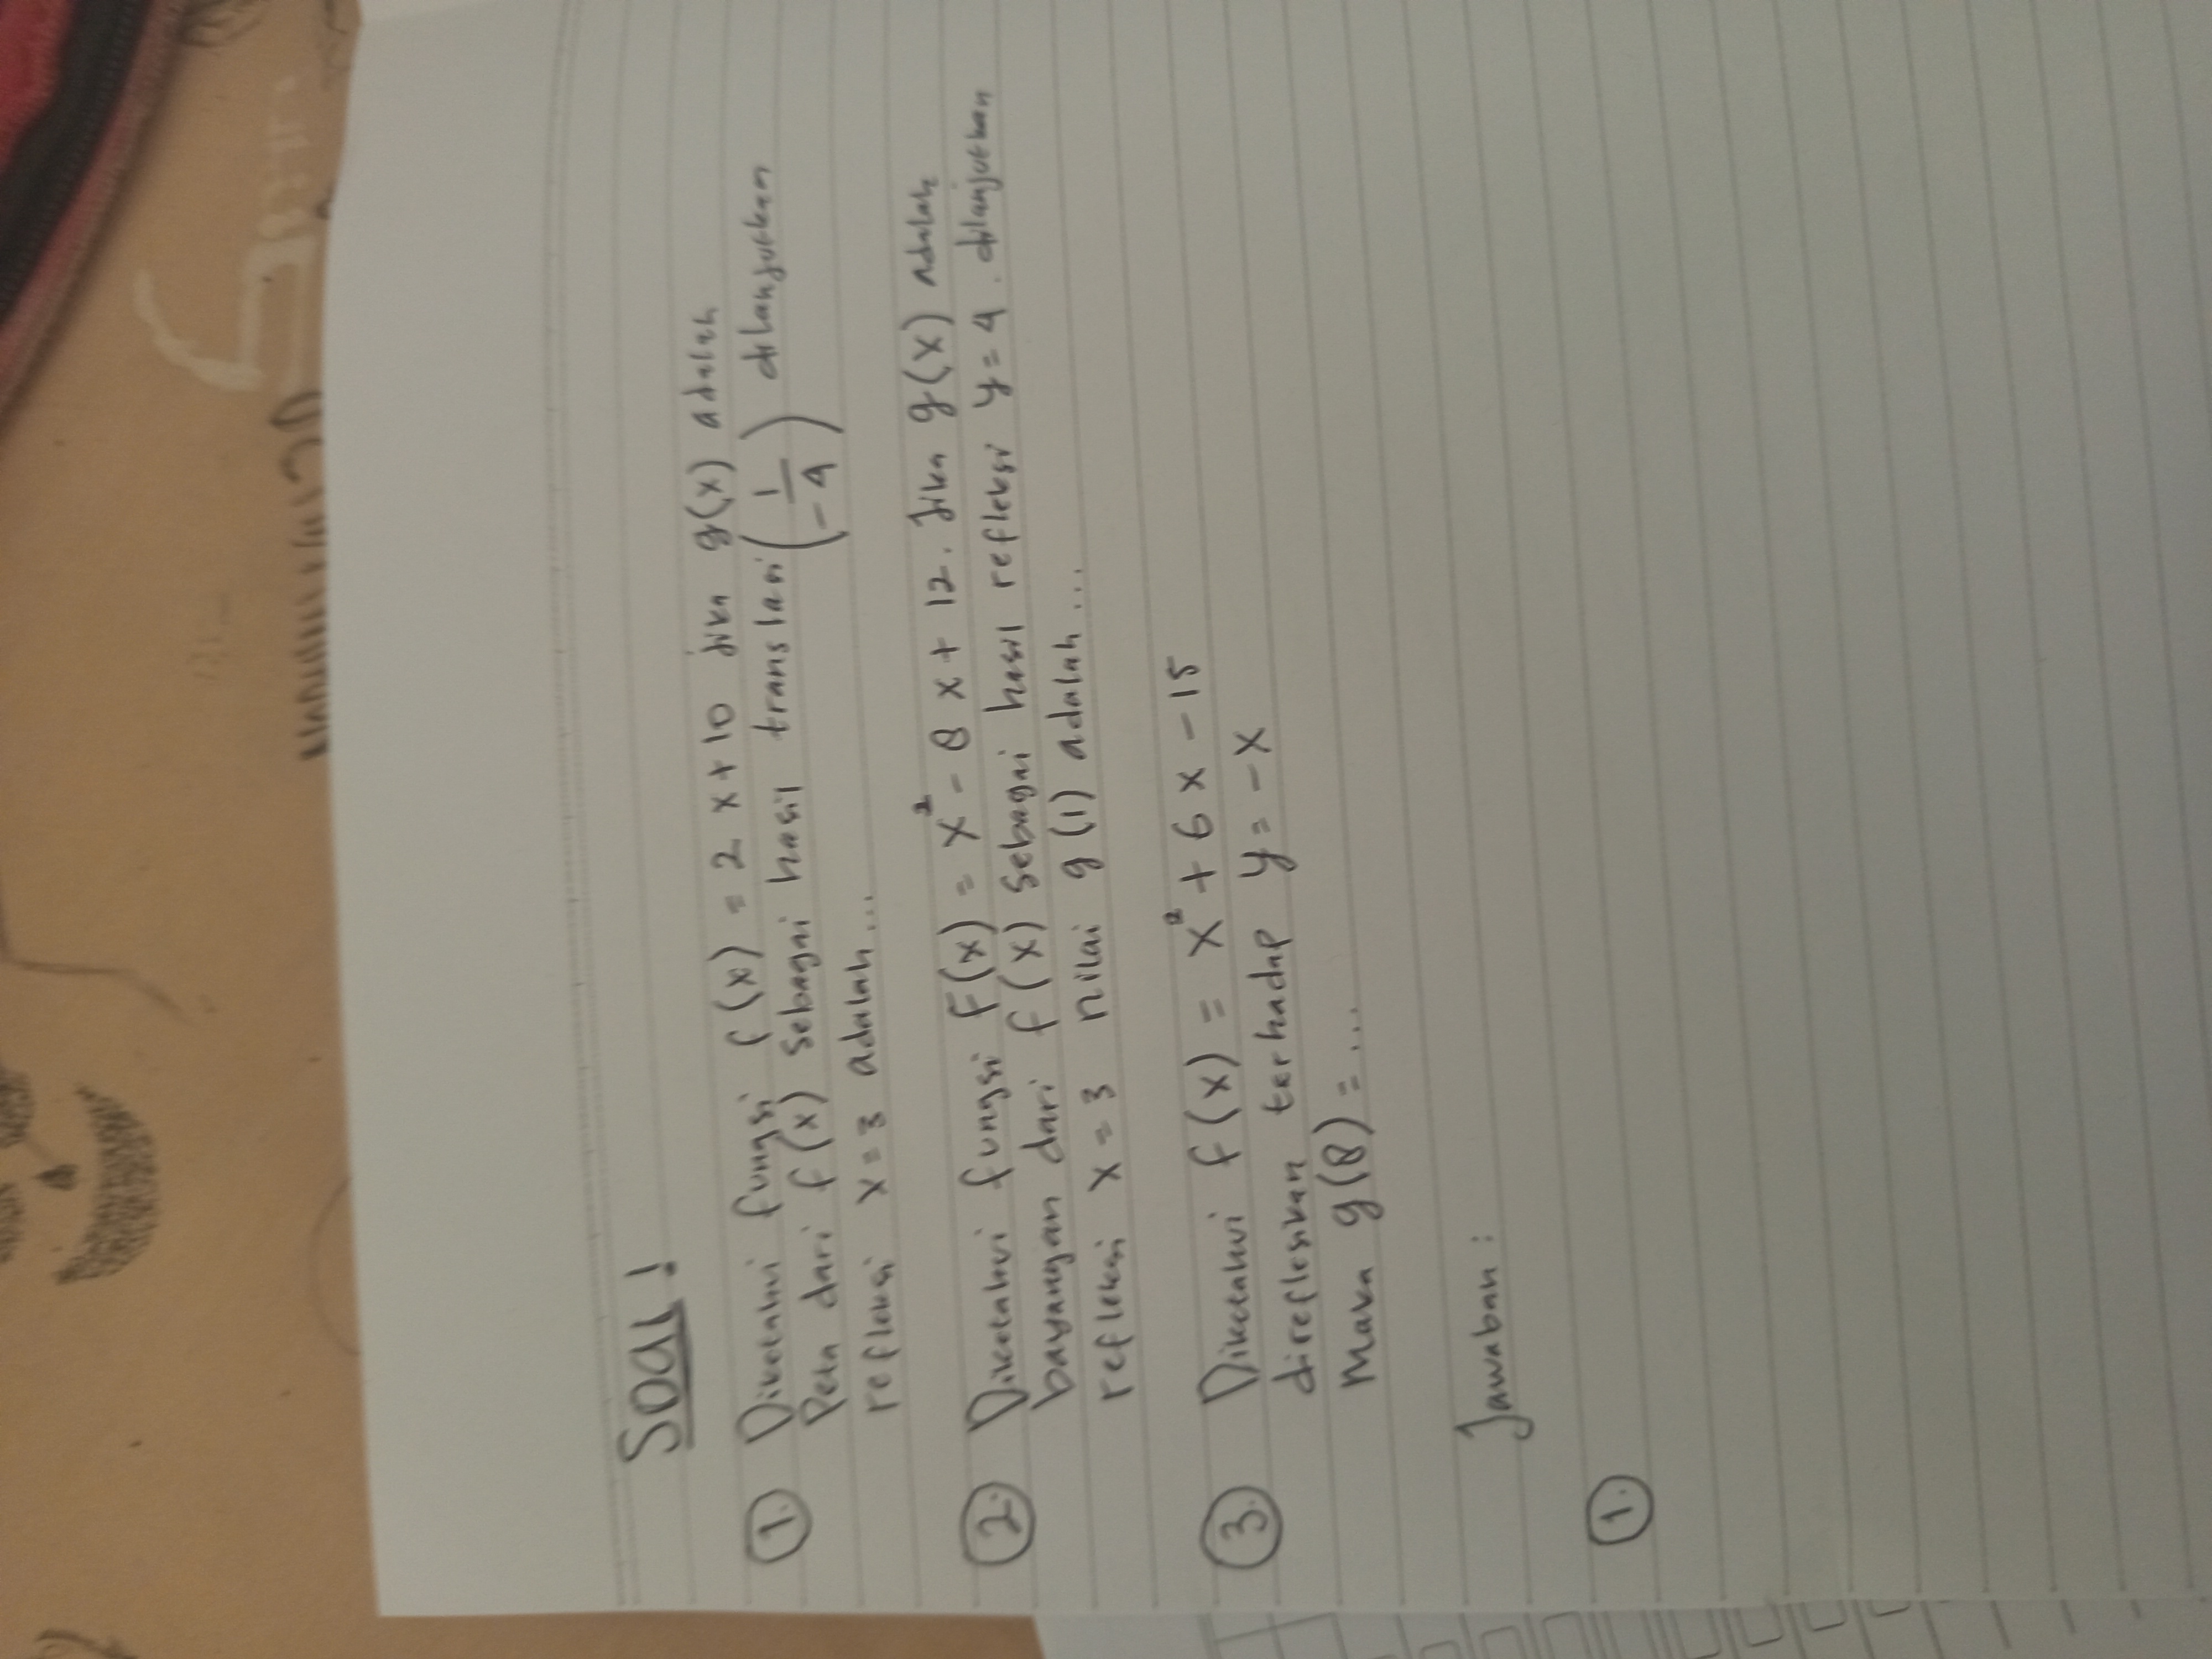 Soal!
1. Diketahui fungsi f(x) = 2x+10 Jika g(x) adalah
Peta dari f(x) sebagai hasil translasi (1/-4) dilanjutkan
refleksi x=3 adalah...
2. Diketahui fungsi F(x) = x² - 8x + 12. Jika g(x) adalah
bayangan dari f(x) sebagai hasil refleksi y=4. dilanjutkan
refleksi x=3 nilai g(1) adalah...
3. Diketahui f(x) = x² + 6x - 15
direflesikan terhadap y = -x
Maka g(8) = ...
Jawaban :
1.